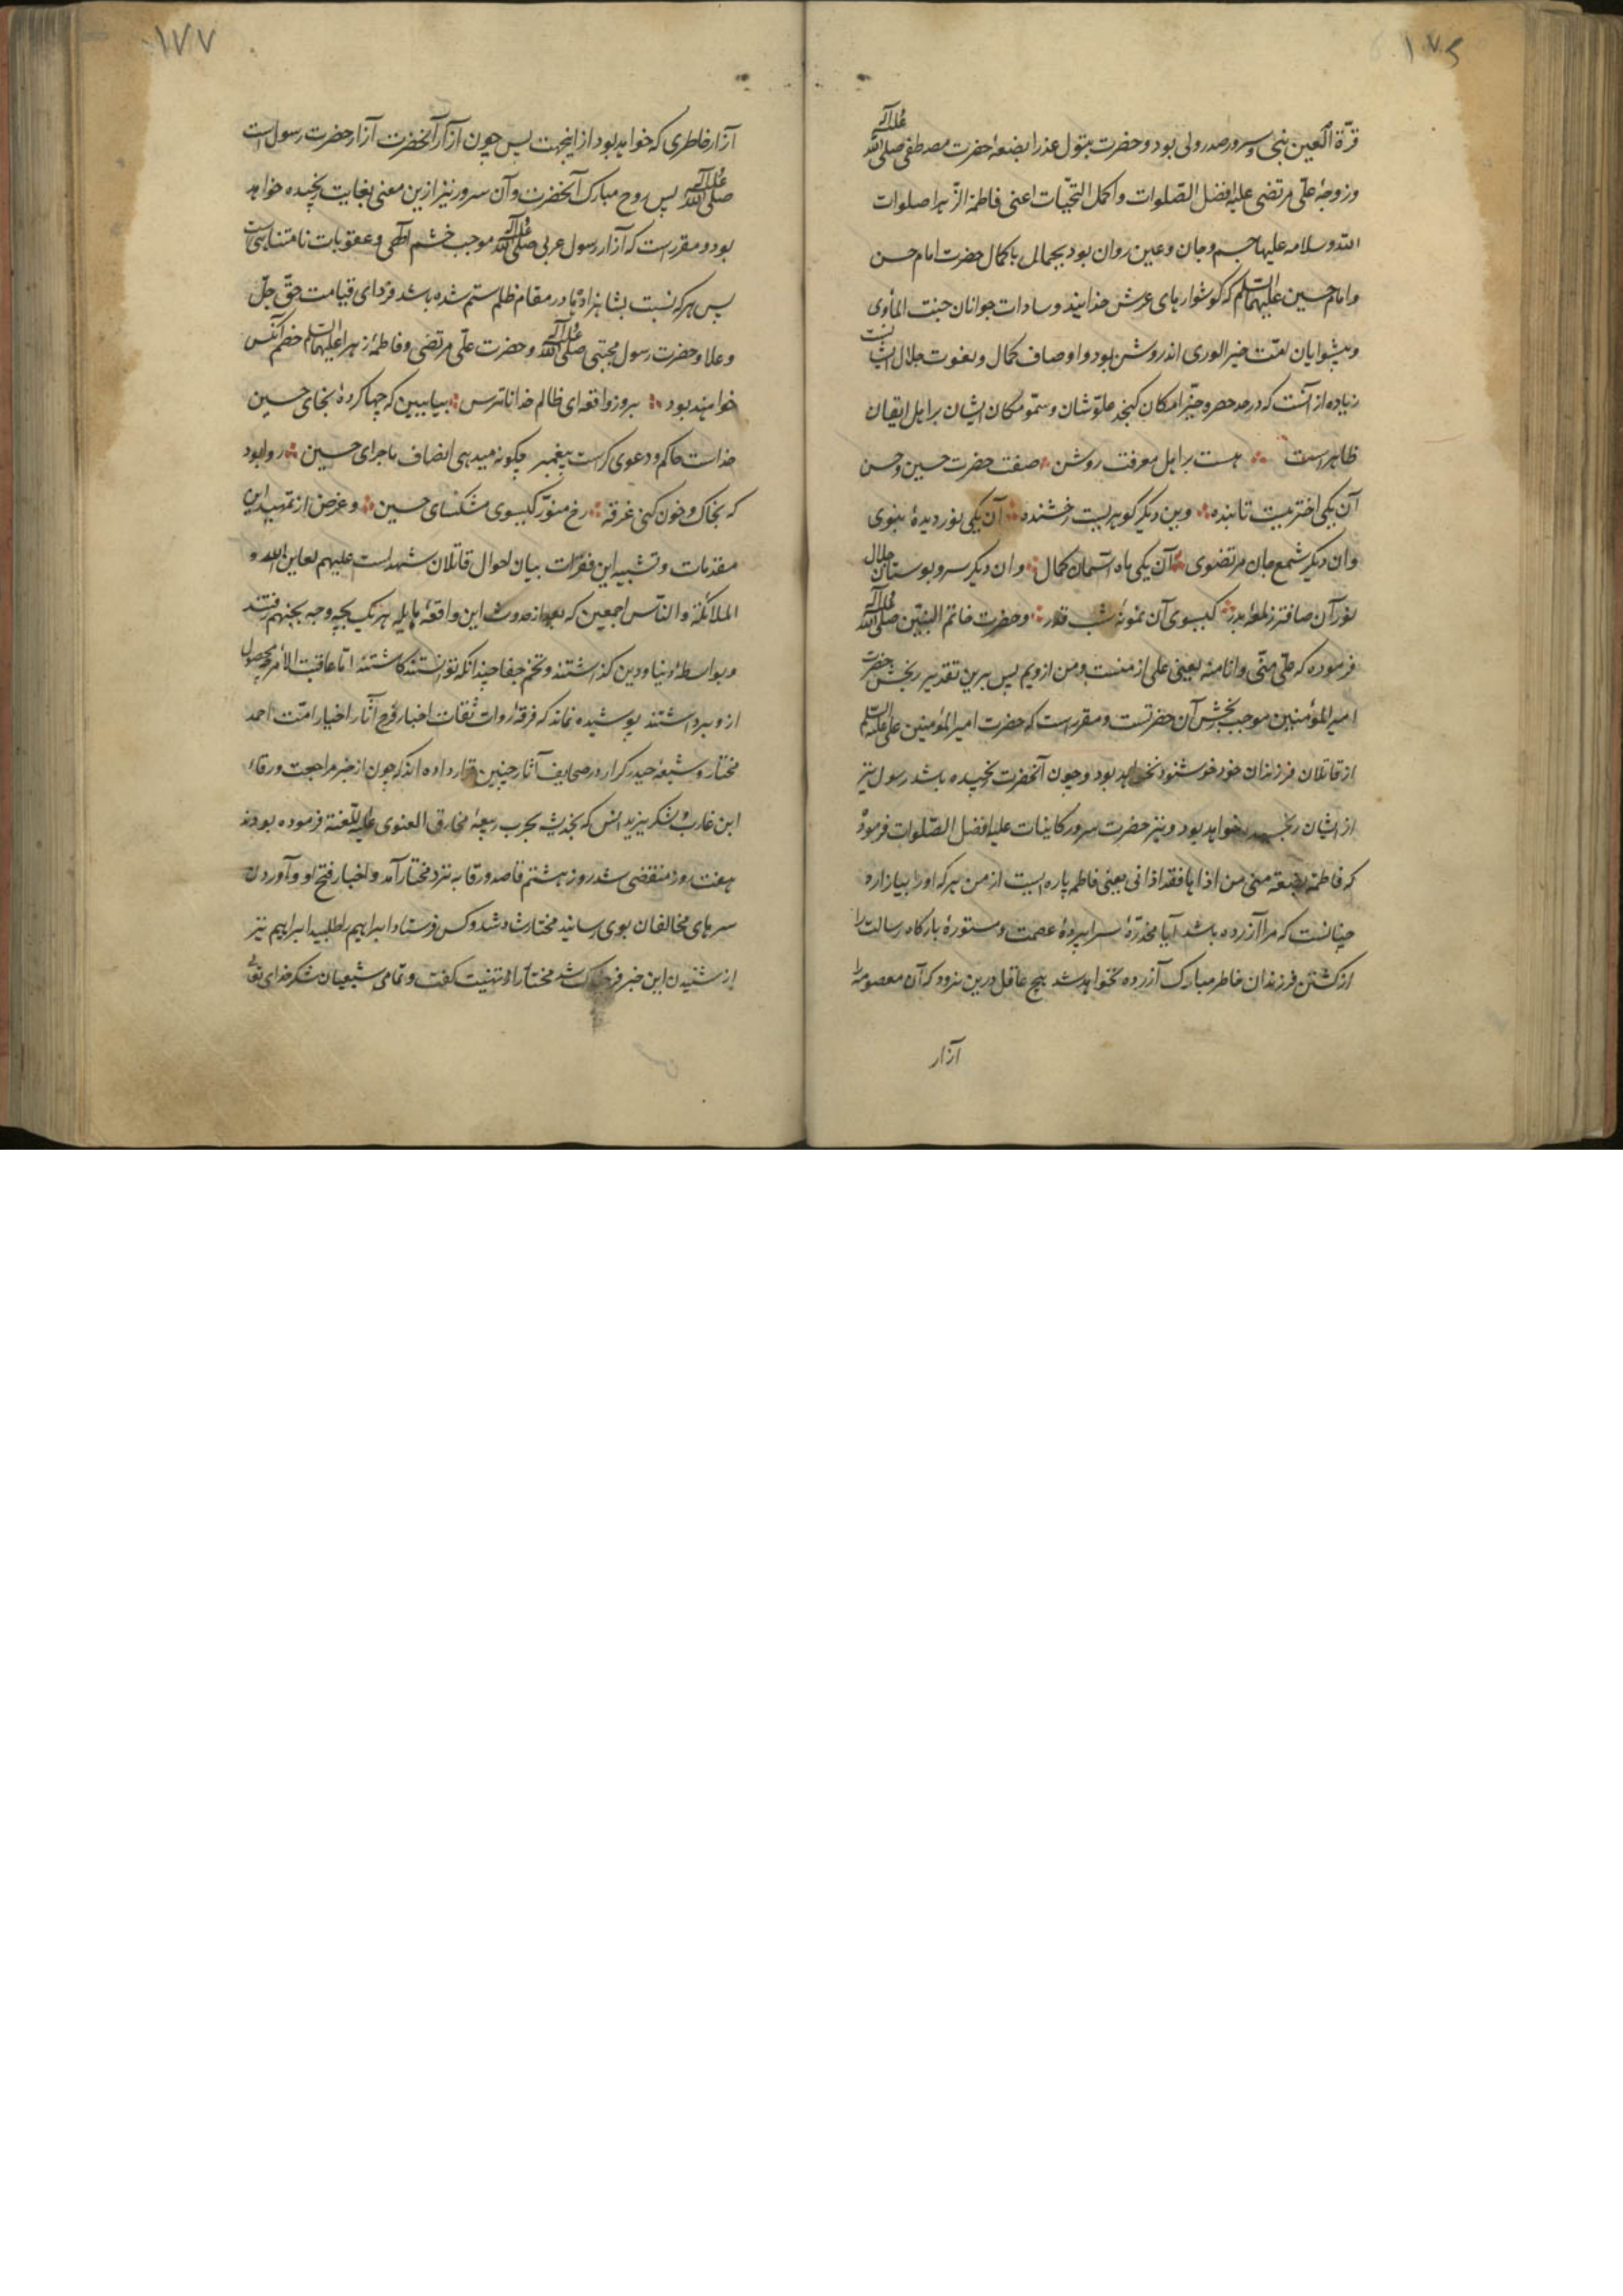 ۱۷۶
قرّة العین نبی و سرور صدر ولی بود و حضرت بتول عذرا بضعهٔ حضرت مصطفی صلی الله علیه و آله
و زوجهٔ علی مرتضی علیه افضل الصّلوات و اکمل التحیّات اعنی فاطمة الزّهرا صلوات
الله و سلامه علیها جسم و جان و عین روان بود بجمالی با کمال حضرت امام حسن
و امام حسین علیهما السلم که کوشوارهای عرش خدایند و سادات جوانان جنت المأوی
و پیشوایان امّت خیر الوری اند روشن بود و اوصاف کمال و نعوت جلال ایشان
زیاده از آنست که در حد حصر و حیّز امکان کنجد علوّ شان و سموّ مکان ایشان بر اهل ایقان
ظاهر است هست بر اهل معرفت روشن صفت حضرت حسین و حسن
آن یکی اختریست تابنده وین دیکر کوهریست رخشنده آن یکی نور دیدهٔ نبوی
وان دیکر شمع جان مرتضوی آن یکی ماه آسمان کمال وان دیکر سرو بوستان جلال
نور آن صافتر ز لمعهٔ بدر کیسوی آن نمونهٔ شب قدر و حضرت خاتم النبیّین صلی الله علیه و آله
فرموده که علیّ منّی و انا منه یعنی علی از منست و من از ویم پس برین تقدیر رنجش حضرت
امیر المؤمنین موجب رنجش آن حضرتست و مقرر است که حضرت امیر المؤمنین علی علیه السلم
از قاتلان فرزندان خود خوشنود نخواهد بود و چون آنحضرت رنجیده باشد رسول نیز
از ایشان رنجیده خواهد بود و نیز حضرت سرور کاینات علیه افضل الصّلوات فرموده
که فاطمة بضعة منی من اذاها فقد اذانی یعنی فاطمه پاره ایست از من هر که او را بیازارد
چنانست که مرا آزرده باشد آیا مخدّرهٔ سراپردهٔ عصمت و مستورهٔ بارکاه رسالت را
از کشتن فرزندان خاطر مبارک آزرده نخواهد شد هیچ عاقل درین نرود که آن معصومه را
آزار
۱۷۷
آزار خاطری که خواهد بود از اینجهت پس چون آزار آنحضرت آزار حضرت رسول است
صلی الله علیه و آله پس روح مبارک آنحضرت و آن سرور نیز ازین معنی بغایت رنجیده خواهد
بود و مقرر است که آزار رسول عربی صلی الله علیه و آله موجب خشم الهی و عقوبات نامتناهی است
پس هر که نسبت بشاهزادها در مقام ظلم ستم شده باشد فردای قیامت حقّ جلّ
و علا و حضرت رسول مجتبی صلی الله علیه و آله و حضرت علی مرتضی و فاطمهٔ زهرا علیهما السلم خصم آنکس
خواهند بود بروز واقعه ای ظالم خداناترس بیا ببین که چها کردهٔ بجای حسین
خداست حاکم و دعوی کراست پیغمبر چکونه میدهی انصاف ماجرای حسین روا بود
که بخاک و خون کنی غرقه رخ منوّر کیسوی مشکسای حسین و غرض از تمهید این
مقدمات و تشبیه این فقرات بیان احوال قاتلان شهداست علیهم لعاین الله و
الملائکة و النّاس اجمعین که بعد از حدوث این واقعهٔ هایله هر یک بچه وجه بجهنم رفتند
و بواسطهٔ دنیا و دین کذاشتند و تخم جفا چندانکه توانستند کاشتند امّا عاقبت الأمر چه محصول
ازو برداشتند پوشیده نماند که فرقهٔ روات ثقات اخبار و آثار اخیار امّت احمد
مختار و شیعهٔ حیدر کرار در صحایف آثار چنین قرار داده اند که چون از خبر مراجعت ورقاء
ابن عازب و لشکر یزید انس که بحرب ربیعهٔ مخارق الغنوی علیه اللّعنة فرموده بودند
هفت روز منقضی شد روز هشتم قاصد ورقا به نزد مختار آمد و اخبار فتح او و آوردن
سرهای مخالفان بوی رسانید مختار شاد شد و کس فرستاد ابراهیم را طلبید ابراهیم نیز
از شنیدن این خبر فرحناک شد مختار را تهنیت کفت و تمامی شیعیان شکر خدای تعالی